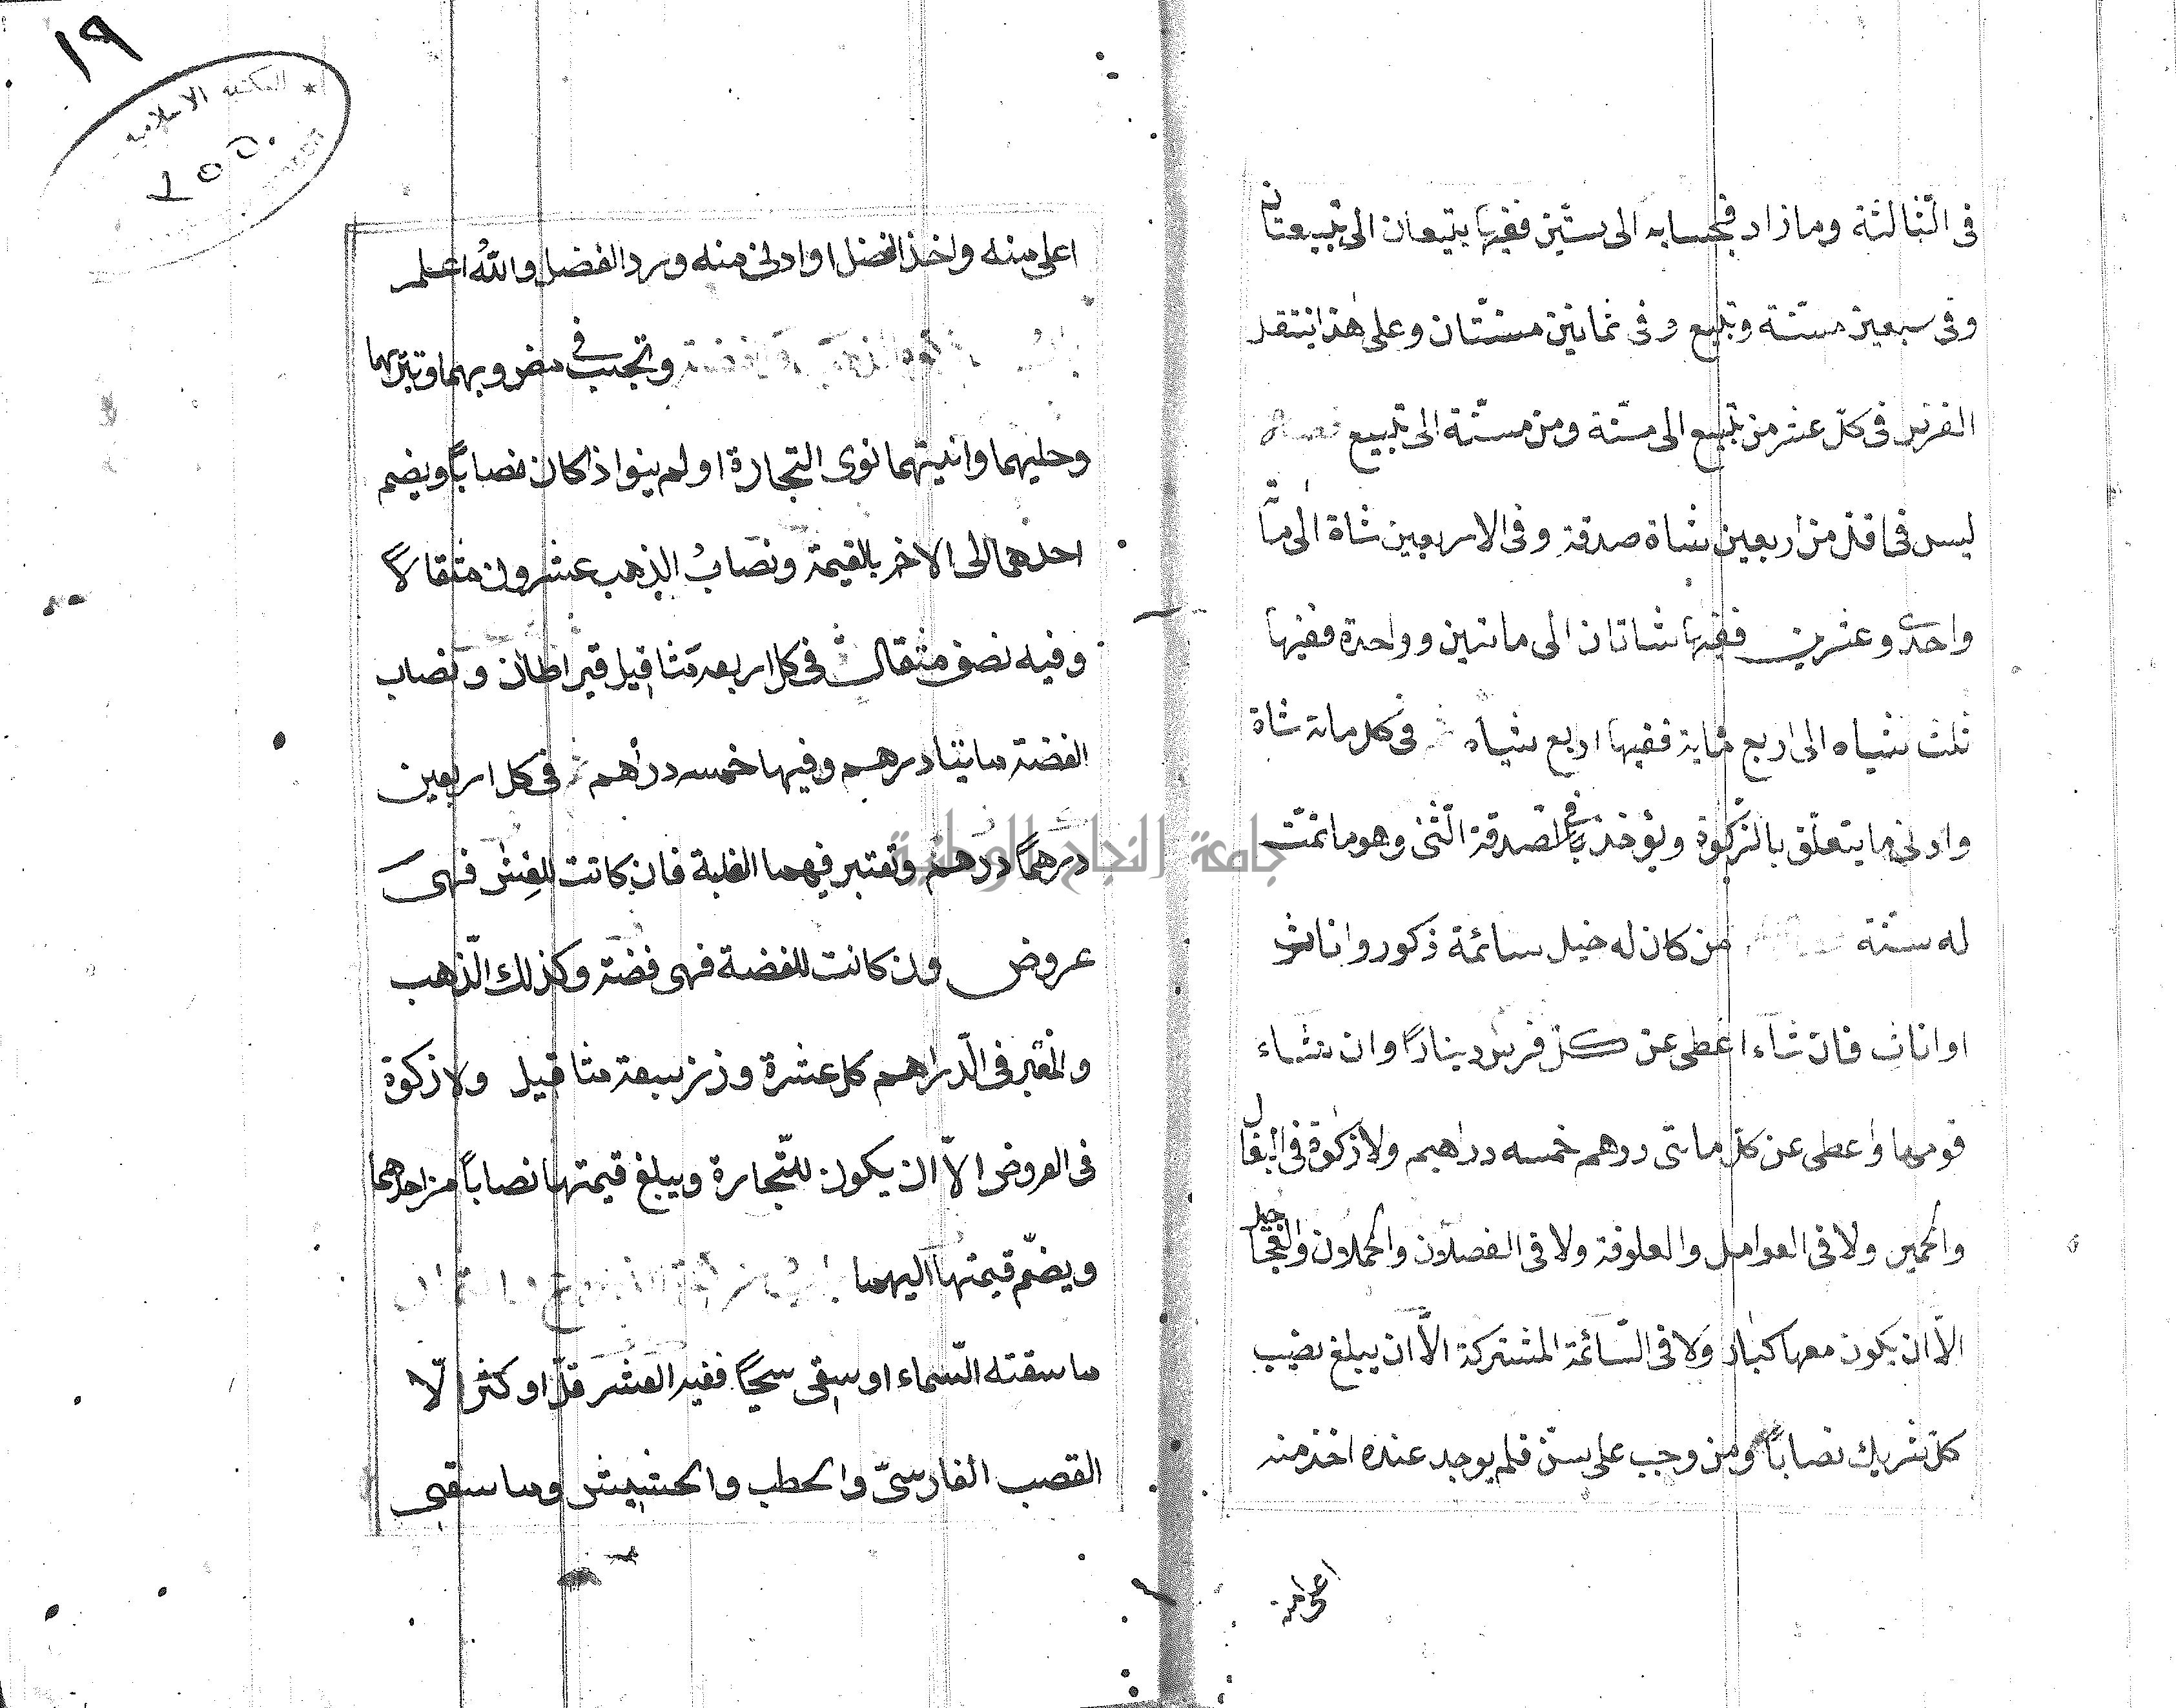 في الثالثة وما زاد فبحسابه الى ستين ففيها تبيعان الى تبيعتان
وفي سبعين مسنة وتبيع وفي ثمانين مسنتان وعلى هذا ينتقد
الفرض في كل عشر من تبيع الى مسنة ومن مسنة الى تبيع فصل
ليس في اقل من اربعين شاة صدقة وفي الاربعين شاة الى مائة
واحدى وعشرين ففيها شاتان الى مائتين وواحدة ففيها
ثلث شياه الى اربع مماية ففيها اربع شياه ثم في كل مائة شاة
وادنى ما يتعلق بالزكوة ويؤخذ في الصدقة الثنى وهو ما تمت
له سنة من كان له خيل سائمة ذكور واناث
او اناث فان شاء اعطى عن كل فرس دينارا وان شاء
قومها واعطى عن كل مائتى درهم خمسه دراهيم ولا زكوة في البغال
والحمير ولا في العوامل والعلوفة ولا في الفصلان والحملان والعجاجيل
الا ان يكون معها كبار ولا في السائمة المشتركة الا ان يبلغ نصيب
كل شريك نصابا ومن وجب على سن فلم يوجد عنده اخذ منه
اعلى منه
١٩
المكتبة الاسلامية
٢٥٥٠
اعلى منه واخذ الفضل او ادنى منه ورد الفضل والله اعلم
باب زكوة الذهب والفضة وتجب في مضروبهما وتبرهما
وحليهما وانيتهما نوى التجارة او لم ينو اذا كان نصابا ويضم
احدهما الى الاخر بالقيمة ونصاب الذهب عشرون مثقالا
وفيه نصف مثقال ثم في كل اربعة مثاقيل قيراطان ونصاب
الفضة مائتا درهم وفيها خمسه دراهم ثم في كل اربعين
درهما درهم وتعتبر فيهما الغلبة فان كانت للغش فهى
عروض وان كانت للفضة فهى فضة وكذلك الذهب
والمعتبر في الدراهم كل عشرة وزن سبعة مثاقيل ولا زكوة
في العروض الا ان يكون للتجارة ويبلغ قيمتها نصابا من احدهما
ويضم قيمتها اليهما باب زكوة الزروع والثمار
ما سقته السماء او سقى سيحا ففيه العشر قل او كثر الا
القصب الفارسى والحطب والحشيش وما سقى
جامعة النجاح الوطنية